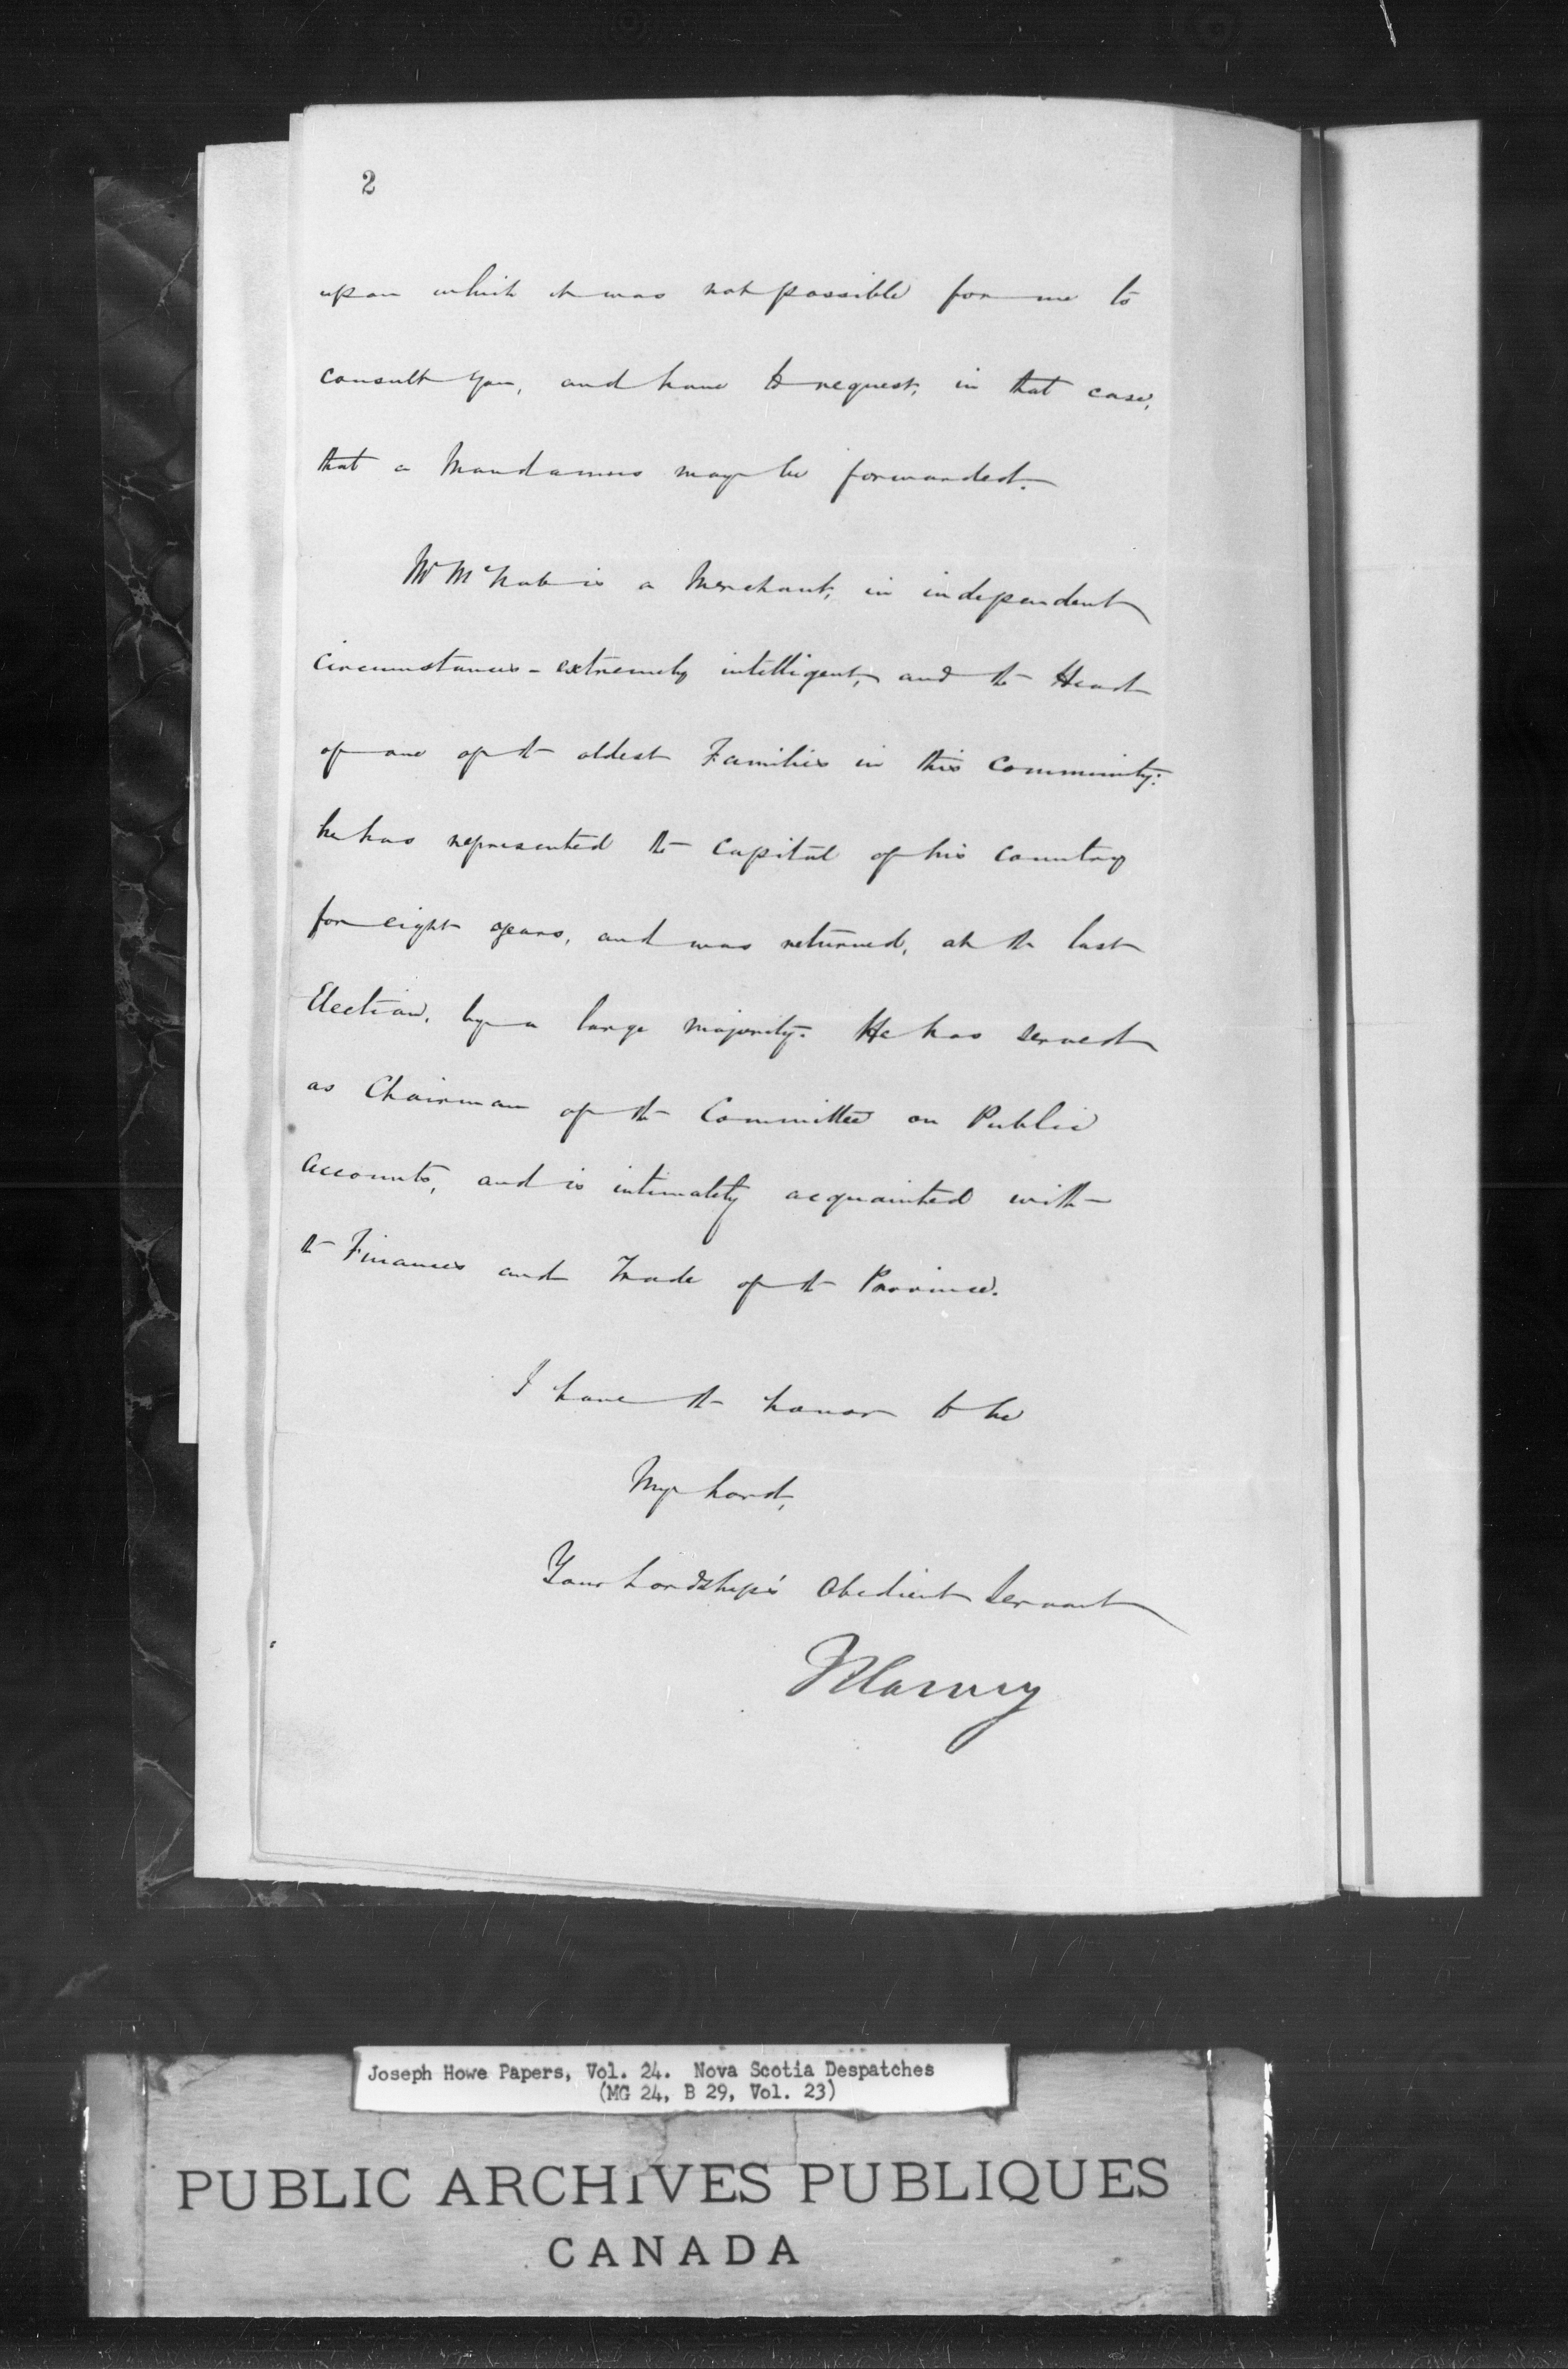 2
upon which it was not possible for me to
consult you, and have to request, in that case,
that a Mandamus may be forwarded.
Mr McNab is a Merchant, in independent
circumstances - extremely intelligent, and the Head
of one of the oldest Families in this Community:
he has represented the Capital of his Country
for eight years, and was returned, at the last
Election, by a large majority. He has served
as Chairman of the Committee on Public
Accounts, and is intimately acquainted with
the Finances and Trade of the Province.
I have the honor to be
My Lord,
Your Lordship's Obedient Servant
J Harvey
Joseph Howe Papers, Vol. 24. Nova Scotia Despatches
(MG 24, B 29, Vol. 23)
PUBLIC ARCHIVES PUBLIQUES
CANADA